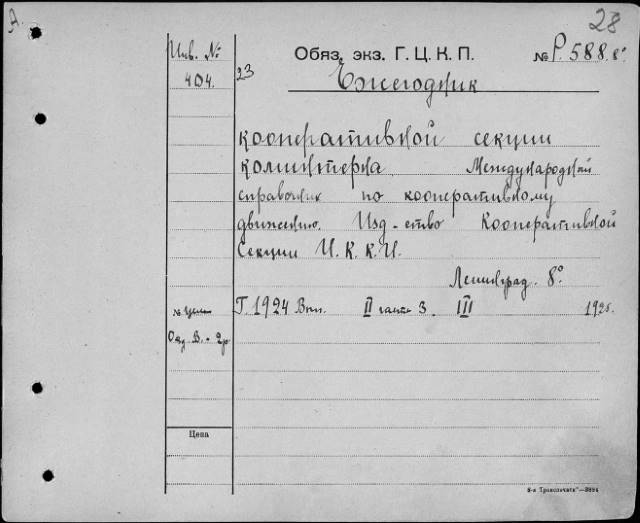 А.
28
Инв. №
404.
Обяз. экз. Г. Ц. К. П.
№ Р. 588. 8°
23
Ежегодник
кооперативной секции
коминтерна Международный
справочник по кооперативному
движению. Изд-ство Кооперативной
Секции И. К. К. И.
Ленинград. 8°
Г. 1924 Вып. II части 3. III 1925.
№
В. - 2р
Цена
8-я „Транспечать"—3894